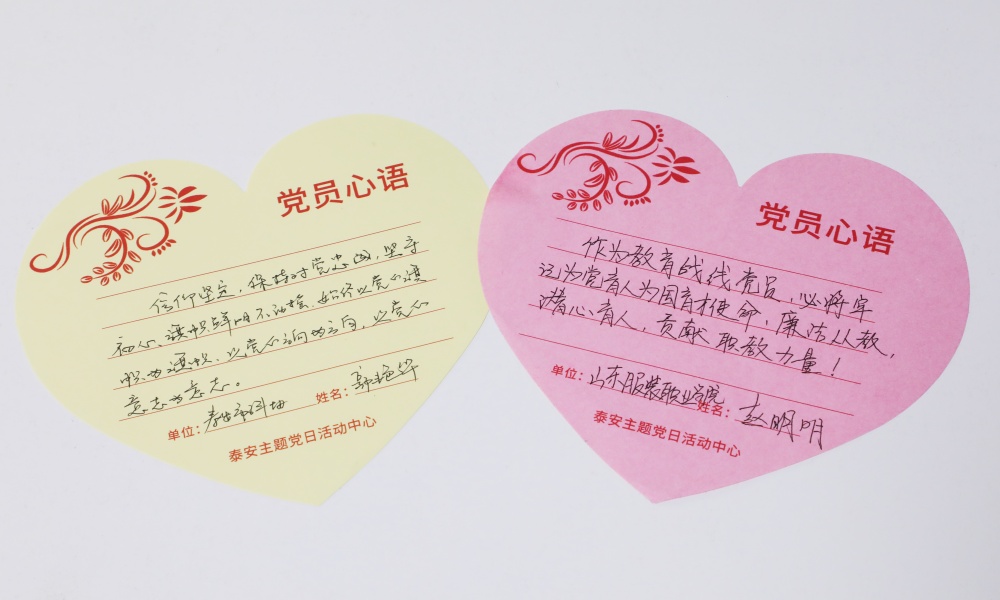 党员心语
信仰坚定，保持对党忠诚，坚守
初心，旗帜鲜明不动摇，始终以党的旗
帜为旗帜，以党的方向为方向，以党的
意志为意志。
单位：泰安市科协
姓名：
泰安主题党日活动中心
党员心语
作为教育战线党员，必将牢
记为党育人为国育才使命，廉洁从教，
潜心育人，贡献职教力量！
单位：山东服装职业学院
姓名：赵明明
泰安主题党日活动中心